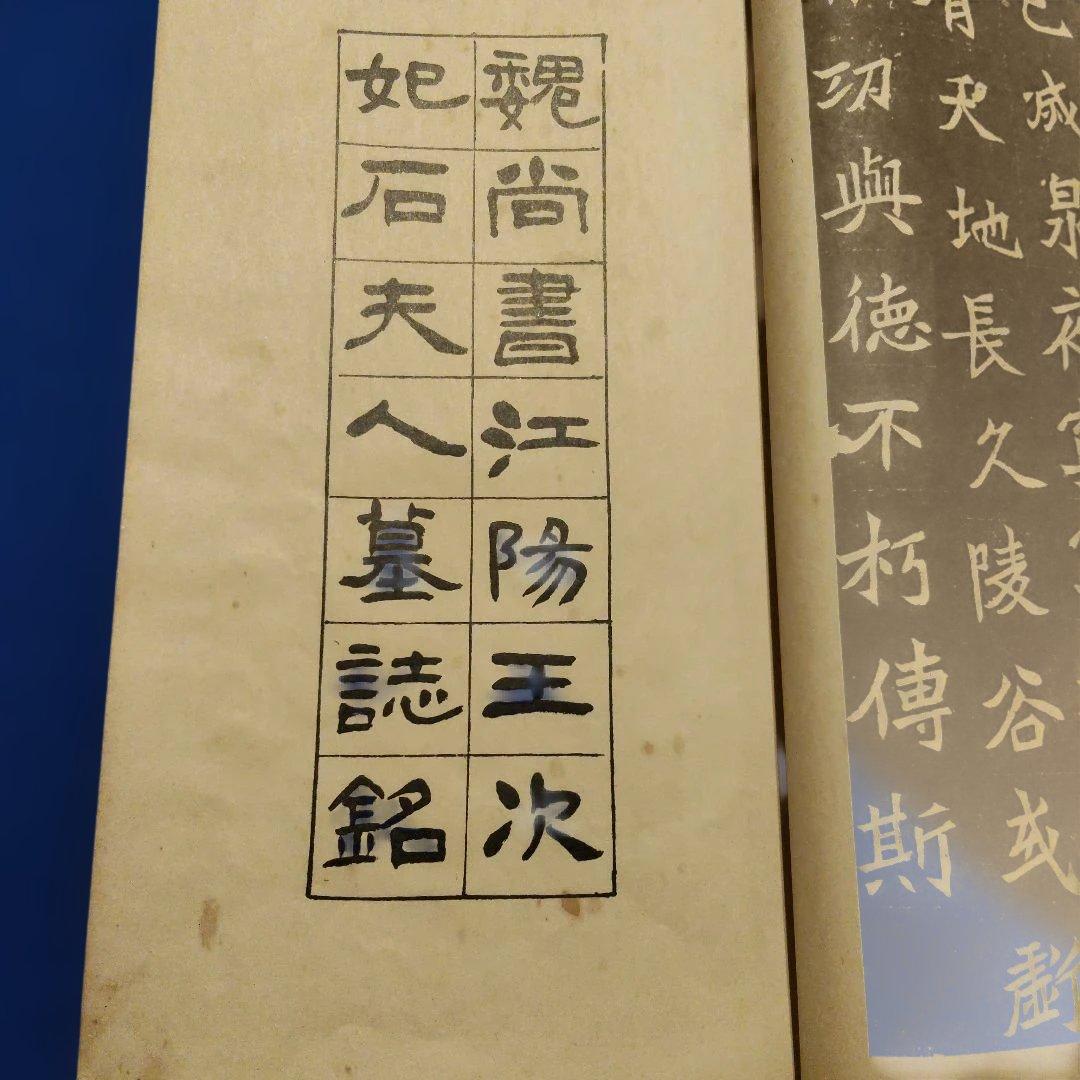 魏尚書江陽王次
妃石夫人墓誌銘
戚泉夜冥
天地長久陵谷或虧
㓛與德不朽傳斯